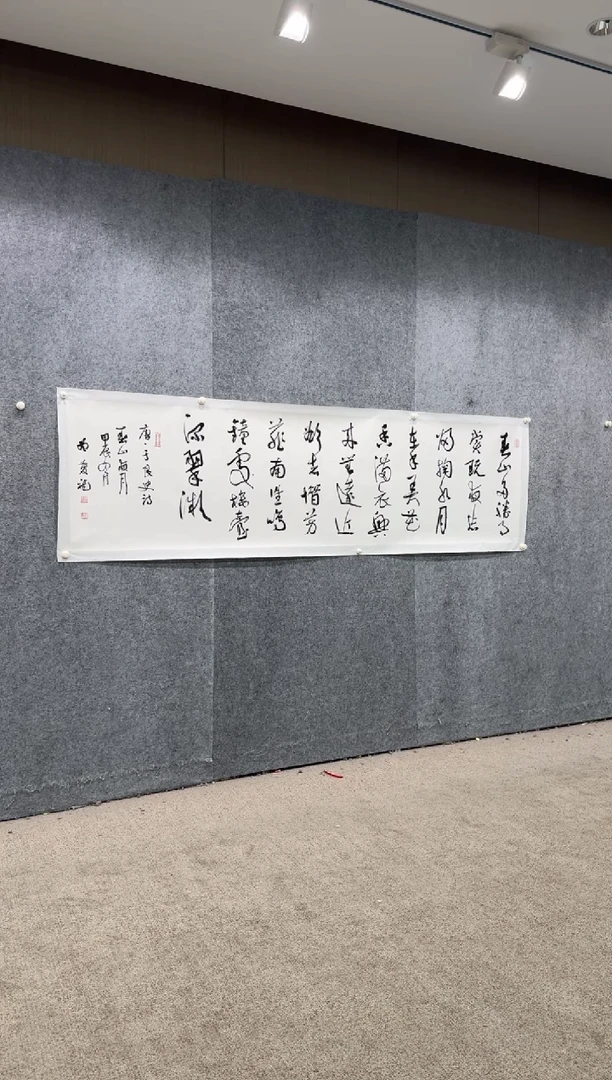 春山多勝事
賞玩夜忘
歸掬水月
在手弄花
香滿衣興
來無遠近
欲去惜芳
菲南望鳴
鐘處樓臺
深翠微
唐于良史詩
春山夜月
甲辰四月